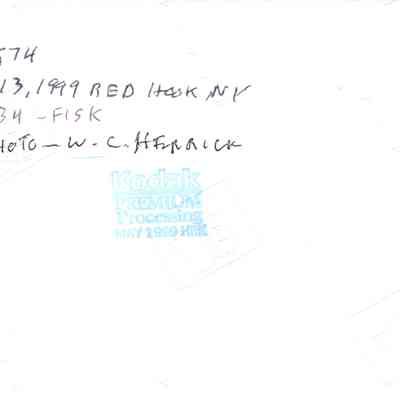 574
13, 1999 RED HOOK NY
34 - FISK
HOTO - W. C. HERRICK
Kodak
PREMIUM
Processing
MAY 1999 HRK